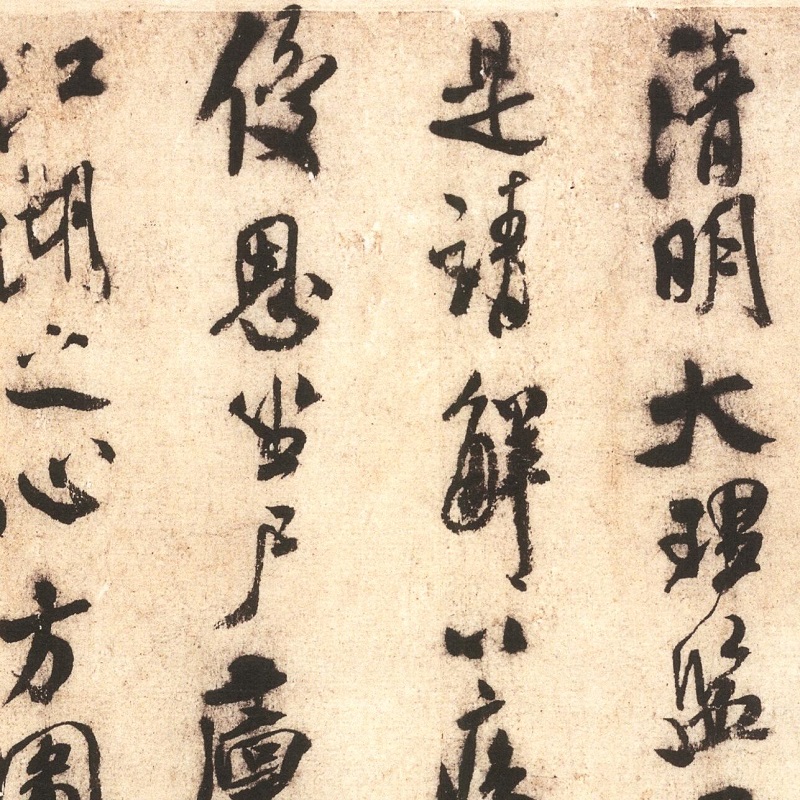 清明大理監
是請解以疾
優恩尸廩
江湖之心方圖